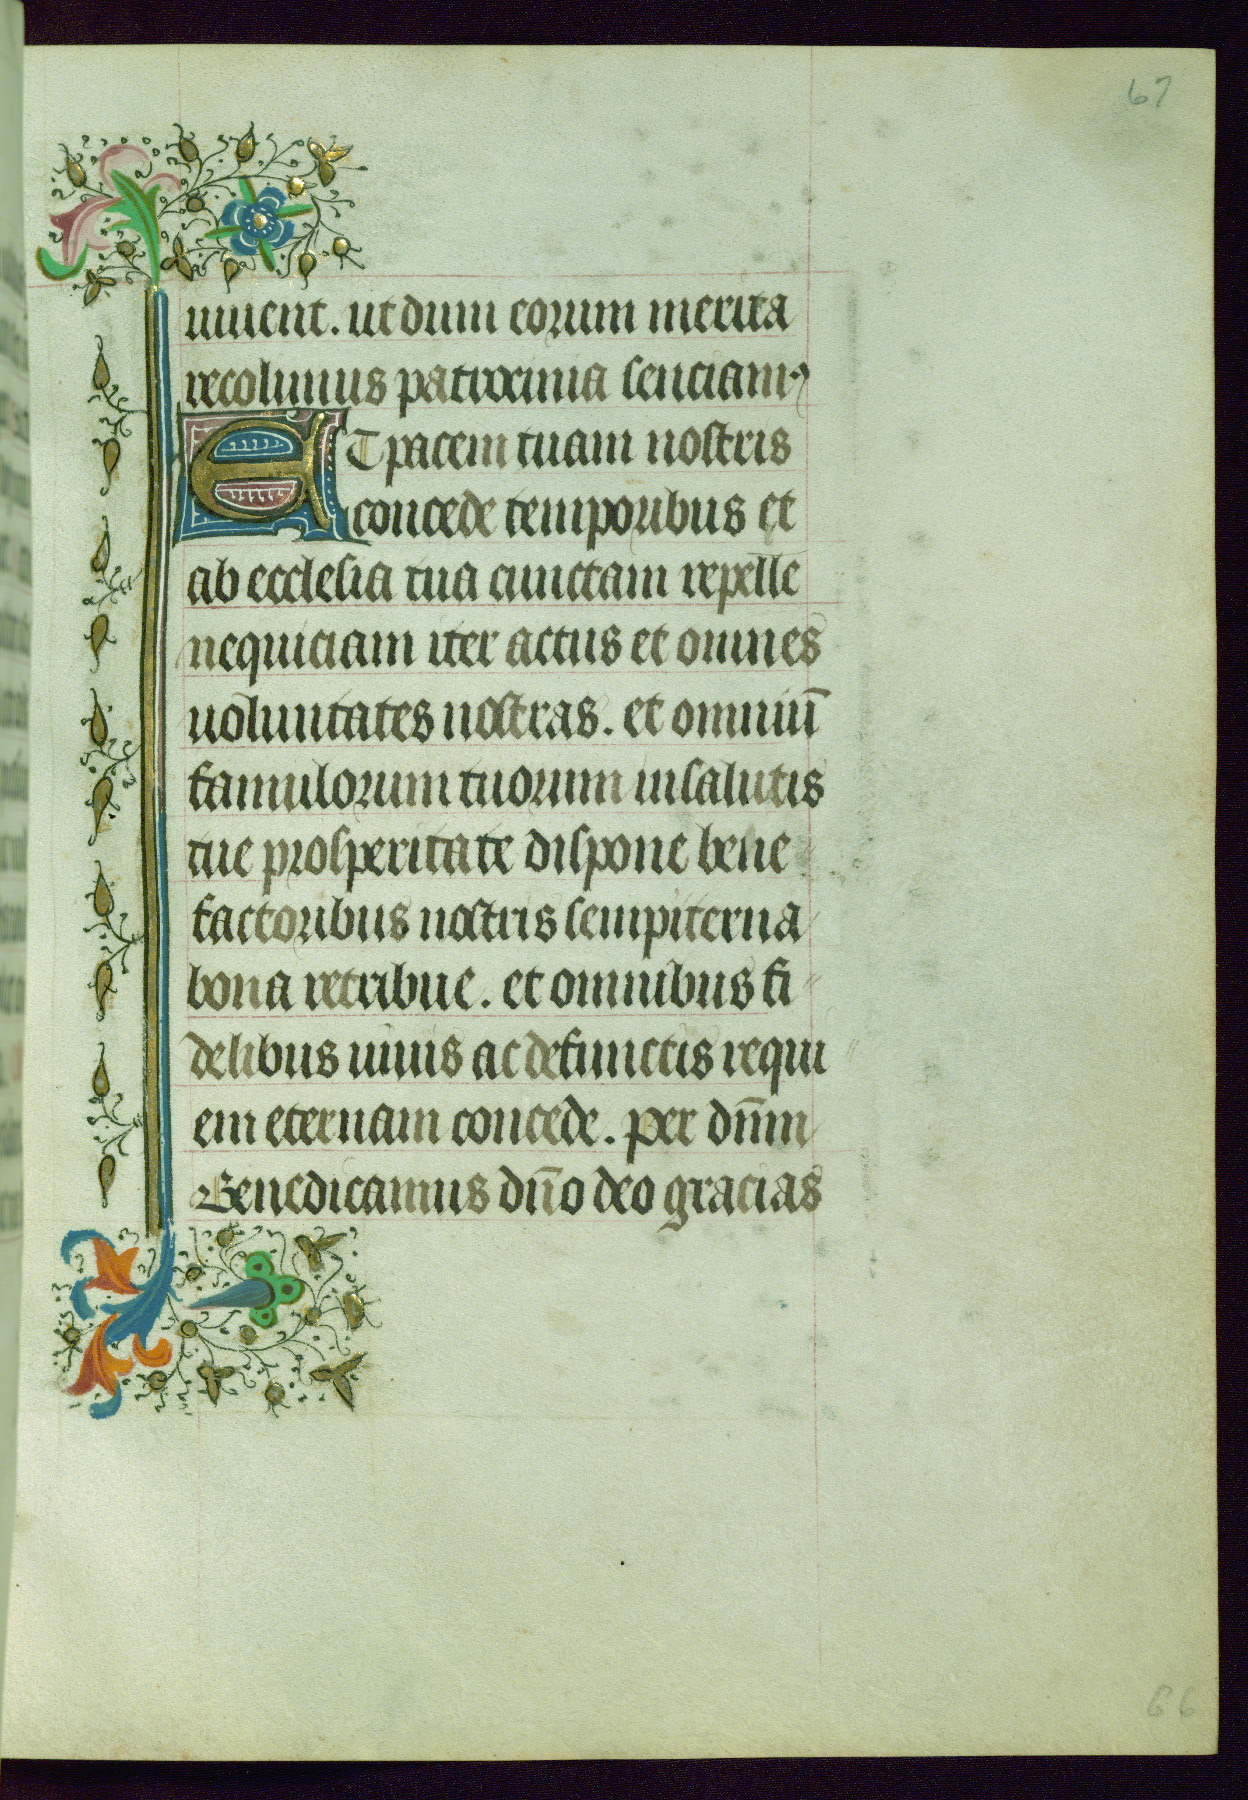 67
uiuent. ut dum eorum merita
recolimus patrocinia senciam9
ET pacem tuam nostris
concede temporibus et
ab ecclesia tua cunctam repelle
nequiciam iter actus et omnes
uoluntates nostras. et omniū
famulorum tuorum in salutis
tue prosperitate dispone bene
factoribus nostris sempiterna
bona retribue. et omnibus fi
delibus uiuis ac defunctis requi
em eternam concede. per dn̄m
Benedicamus dn̄o deo gracias
66